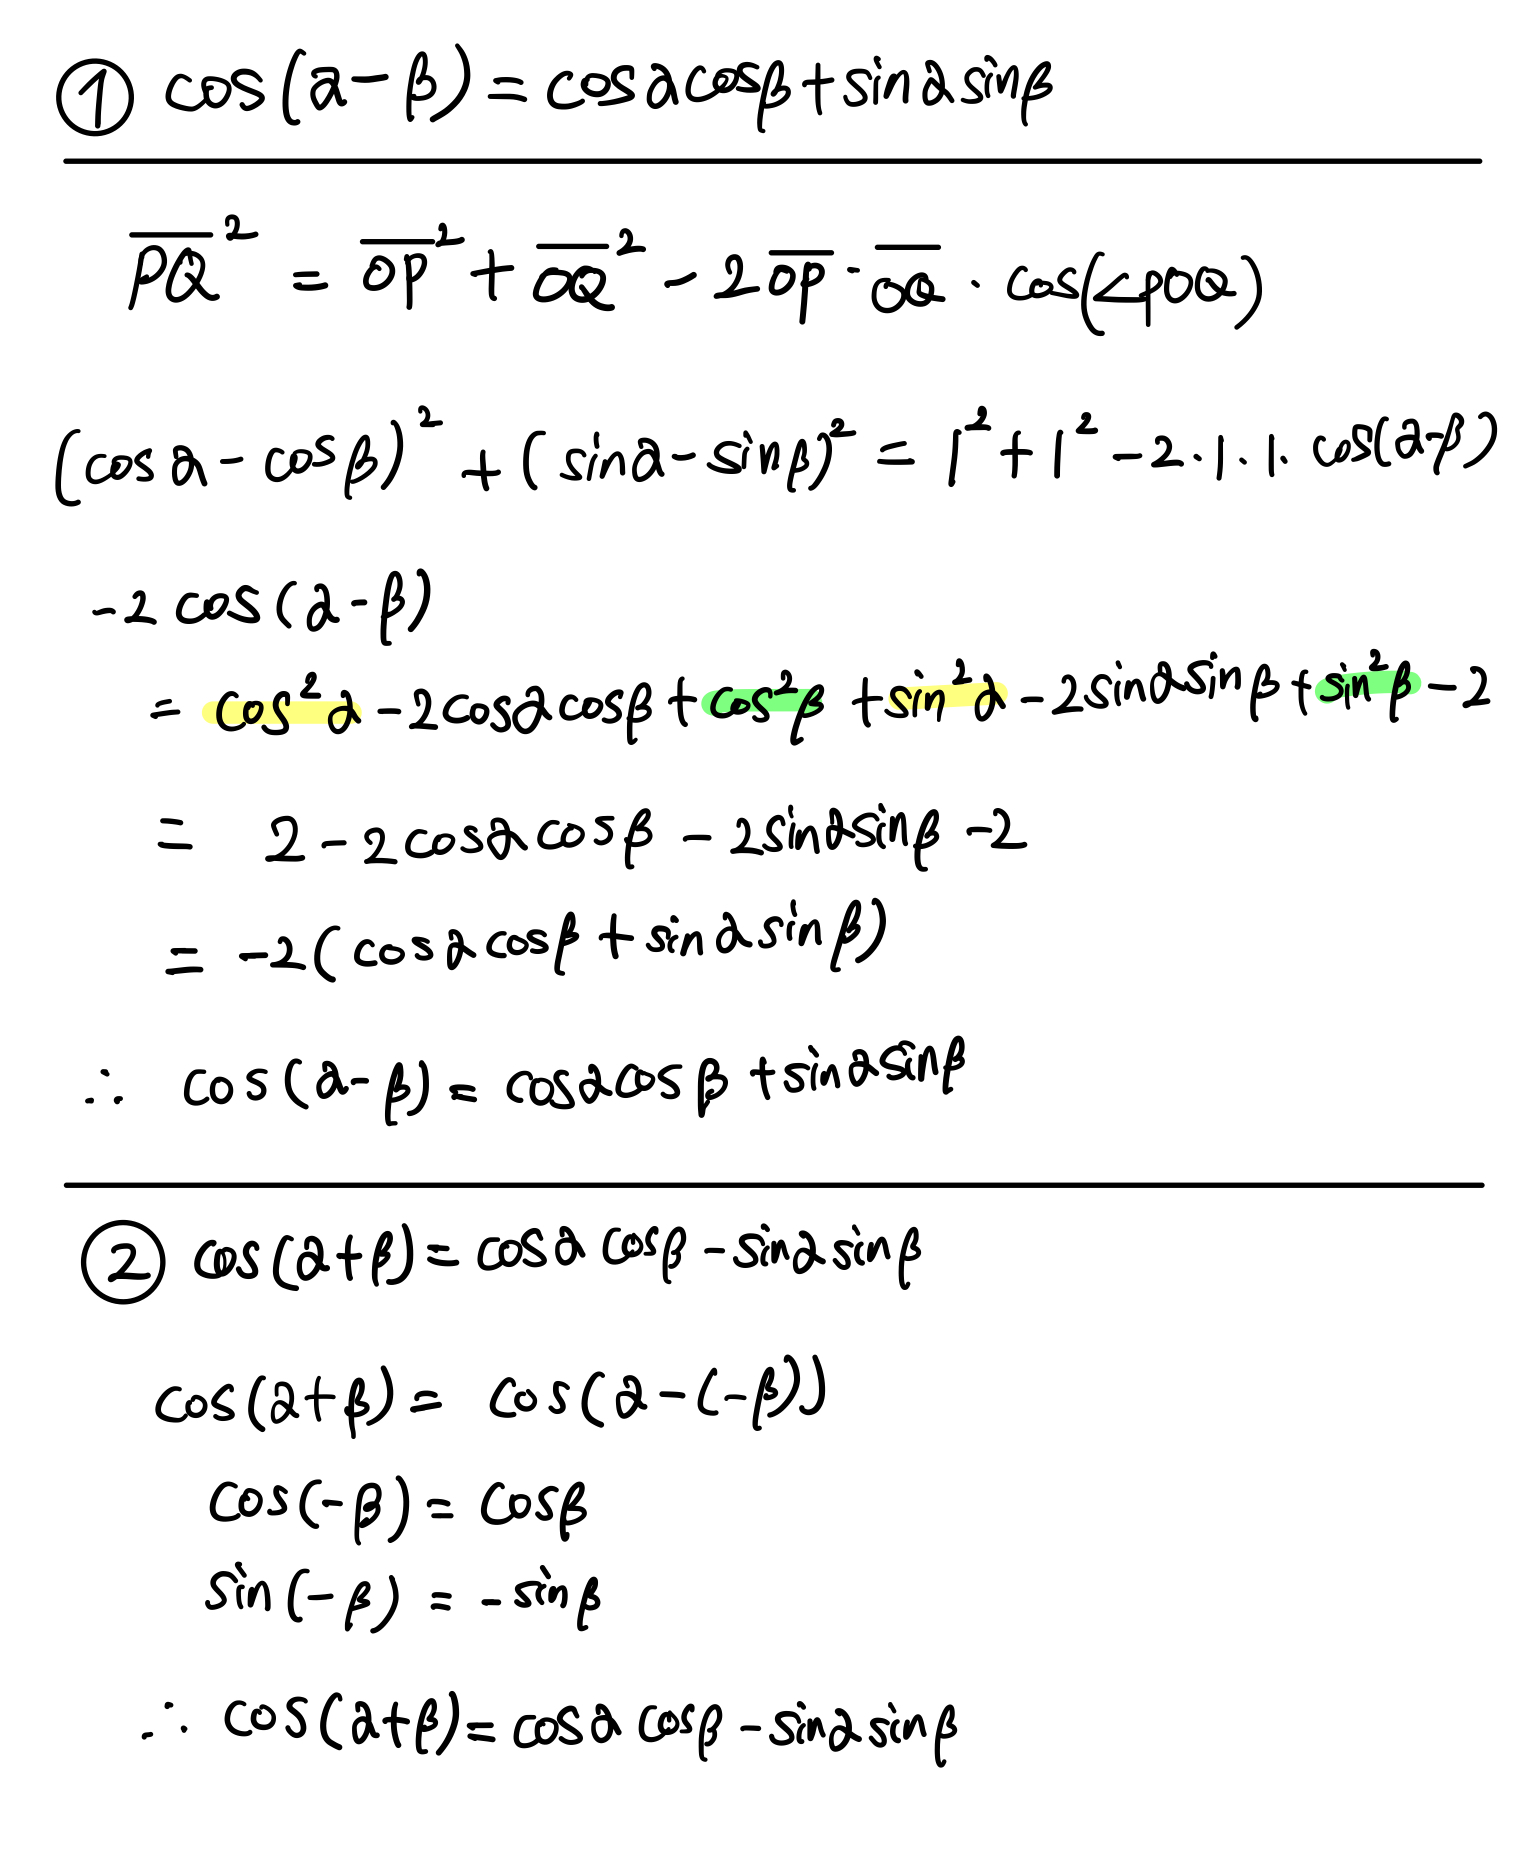 ① cos(α-β)=cosαcosβ+sinαsinβ
P̅Q̅² = O̅P̅² + O̅Q̅² - 2O̅P̅·O̅Q̅·cos(∠POQ)
(cosα-cosβ)² + (sinα-sinβ)² = 1²+1²-2·1·1·cos(α-β)
-2cos(α-β)
= cos²α-2cosαcosβ+cos²β+sin²α-2sinαsinβ+sin²β-2
= 2-2cosαcosβ-2sinαsinβ-2
= -2(cosαcosβ+sinαsinβ)
∴ cos(α-β)=cosαcosβ+sinαsinβ
② cos(α+β)=cosαcosβ-sinαsinβ
cos(α+β)= cos(α-(-β))
cos(-β)=cosβ
sin(-β) = -sinβ
∴ cos(α+β)=cosαcosβ-sinαsinβ